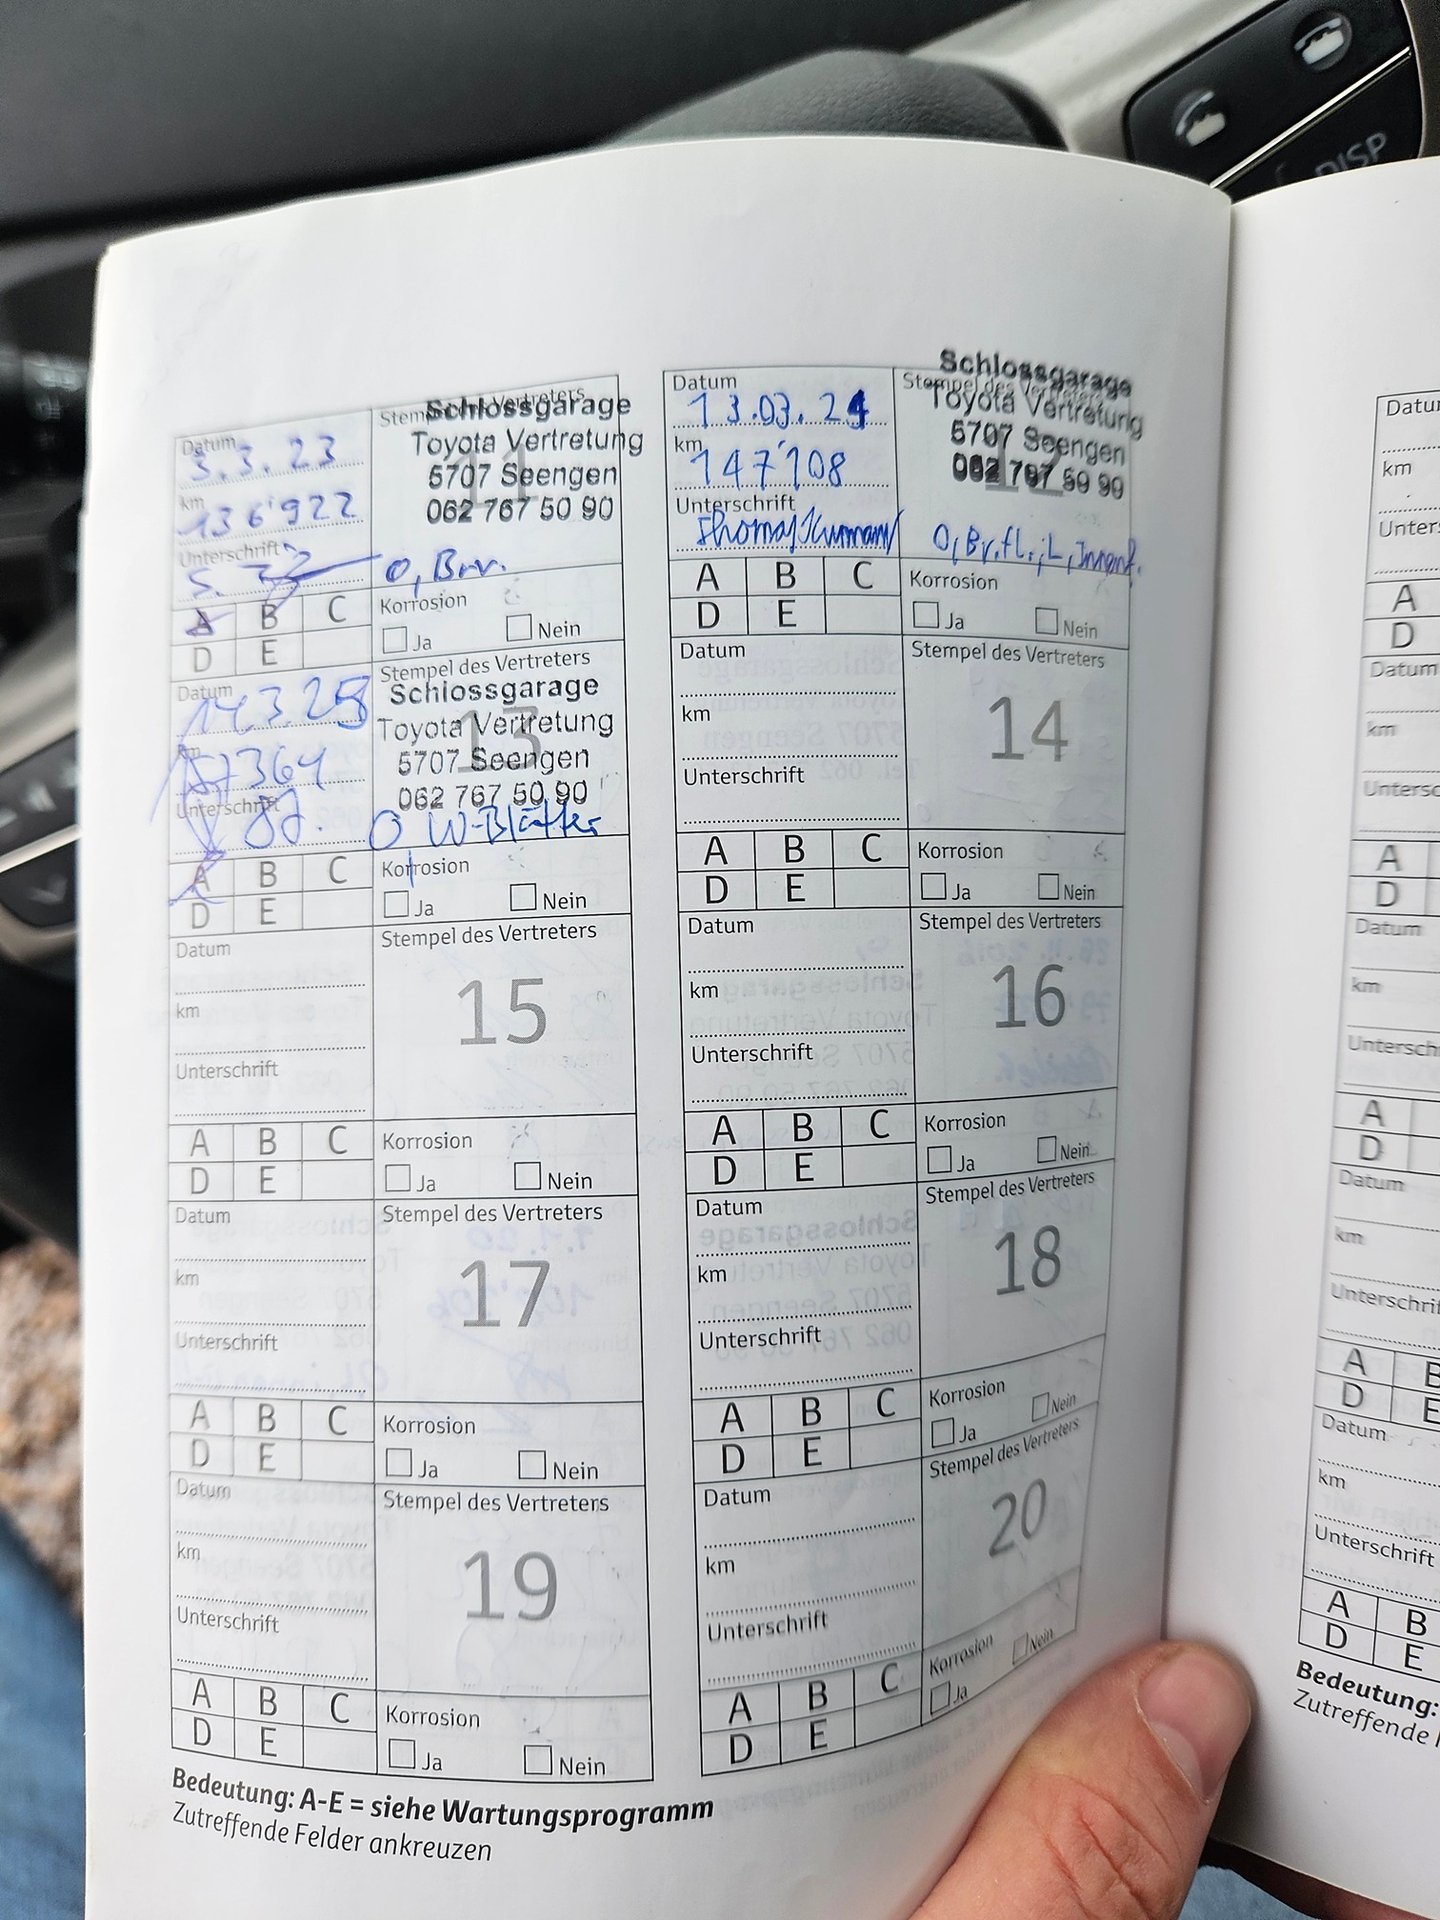 Datum
3.3.23
km
136'922
Unterschrift
Stempel des Vertreters
11
Schlossgarage
Toyota Vertretung
5707 Seengen
062 767 50 90
O, Brv.
A B C
D E
Korrosion
Ja Nein
Datum
13.03.24
km
147'108
Unterschrift
Stempel des Vertreters
12
Schlossgarage
Toyota Vertretung
5707 Seengen
062 767 50 90
A B C
D E
Korrosion
Ja Nein
Datum
14.3.25
km
157364
Unterschrift
Stempel des Vertreters
13
Schlossgarage
Toyota Vertretung
5707 Seengen
062 767 50 90
O W-Blätter
A B C
D E
Korrosion
Ja Nein
Datum
km
Unterschrift
Stempel des Vertreters
14
A B C
D E
Korrosion
Ja Nein
Datum
km
Unterschrift
Stempel des Vertreters
15
A B C
D E
Korrosion
Ja Nein
Datum
km
Unterschrift
Stempel des Vertreters
16
A B C
D E
Korrosion
Ja Nein
Datum
km
Unterschrift
Stempel des Vertreters
17
A B C
D E
Korrosion
Ja Nein
Datum
km
Unterschrift
Stempel des Vertreters
18
A B C
D E
Korrosion
Ja Nein
Datum
km
Unterschrift
Stempel des Vertreters
19
A B C
D E
Korrosion
Ja Nein
Datum
km
Unterschrift
Stempel des Vertreters
20
A B C
D E
Korrosion
Ja Nein
Bedeutung: A-E = siehe Wartungsprogramm
Zutreffende Felder ankreuzen
DISP
km
A
D
Datum
km
A
D
Datum
km
A
D
Datum
km
A B
D E
Datum
km
Unterschrift
A B
D E
Bedeutung:
Zutreffende